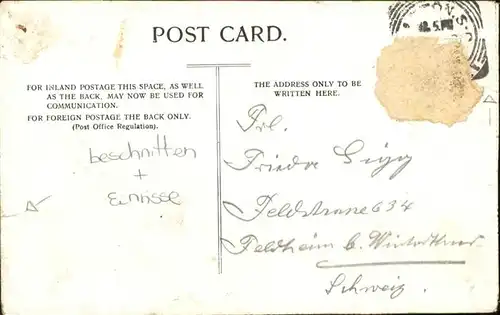 POST CARD.
FOR INLAND POSTAGE THIS SPACE, AS WELL
AS THE BACK, MAY NOW BE USED FOR
COMMUNICATION.
FOR FOREIGN POSTAGE THE BACK ONLY.
(Post Office Regulation).
THE ADDRESS ONLY TO BE
WRITTEN HERE.
beschnitten
+
Einrisse
Frl.
Frieda
Feldstrasse 634
Feldheim b. Winterthur
Schweiz.